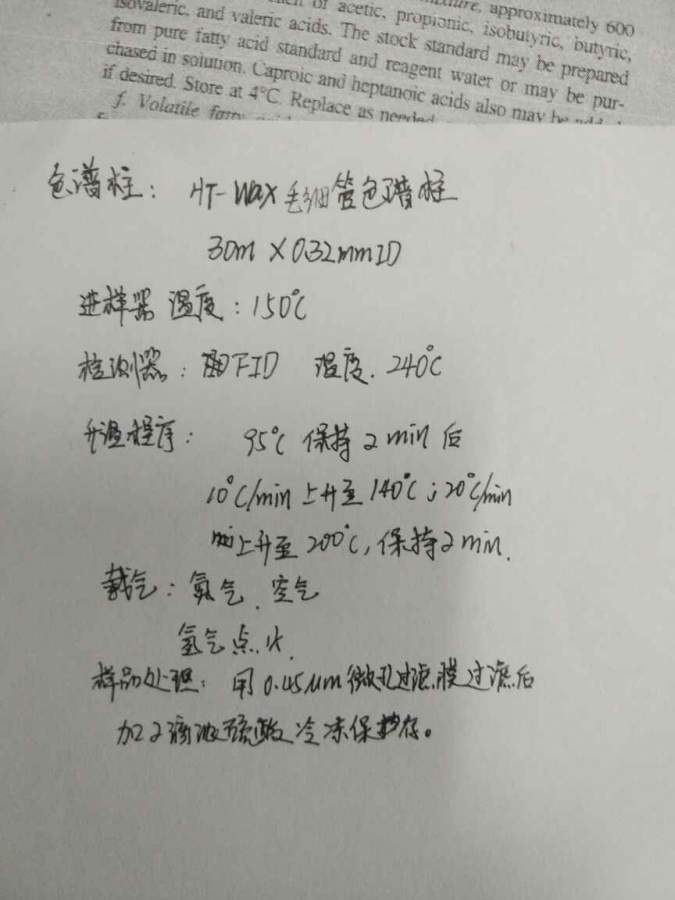 of acetic, propionic, isobutyric, butyric, approximately 600
isovaleric, and valeric acids. The stock standard may be prepared
from pure fatty acid standard and reagent water or may be pur-
chased in solution. Caproic and heptanoic acids also may be
if desired. Store at 4°C. Replace as needed
f. Volatile fatty
色谱柱: HT-WAX 毛细管色谱柱
30m×0.32mmID
进样器温度:150℃
检测器:FID 温度.240℃
升温程序: 95℃保持2min后
10℃/min上升至140℃;20℃/min
上升至200℃,保持2min.
载气:氮气.空气
氢气点火.
样品处理:用0.45μm微孔过滤膜过滤后
加2滴浓硫酸冷冻保存。